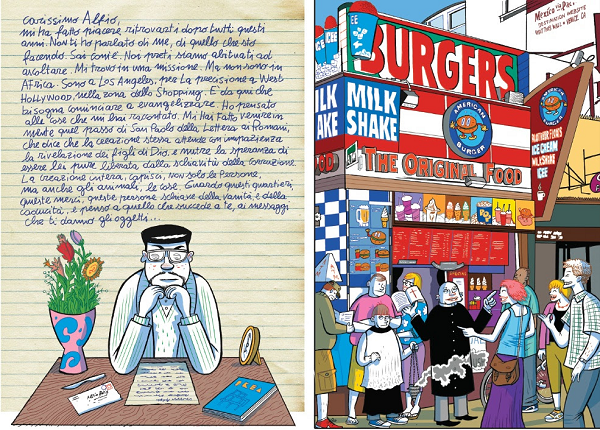 carissimo Alfio,
mi ha fatto piacere ritrovarti dopo tutti questi
anni. Non ti ho parlato di me, di quello che sto
facendo. Sai com'è. Noi preti siamo abituati ad
ascoltare. Mi trovo in una missione. Ma non sono in
Africa. Sono a Los Angeles, per la precisione a West
Hollywood, nella zona dello shopping. È da qui che
bisogna cominciare a evangelizzare. Ho pensato
alle cose che mi hai raccontato. Mi hai fatto venire in
mente quel passo di San Paolo della Lettera ai Romani,
che dice che la creazione stessa attende con impazienza
la rivelazione dei figli di Dio, e nutre la speranza di
essere lei pure liberata dalla schiavitù della corruzione.
La creazione intera, capisci, non solo le persone,
ma anche gli animali, le cose. Guardo questi quartieri,
queste merci, queste persone schiave della vanità e della
caducità, e penso a quello che succede a te, ai messaggi
che ti danno gli oggetti...
IKEA
Mexico
DESTINATION WEBSITE
VENICE CA
ICE
BURGERS
MILK
SHAKE
MILK
SHAKE
AMERICAN
BURGER
THE ORIGINAL FOOD
ICE CREAM
MILKSHAKE
ICEE